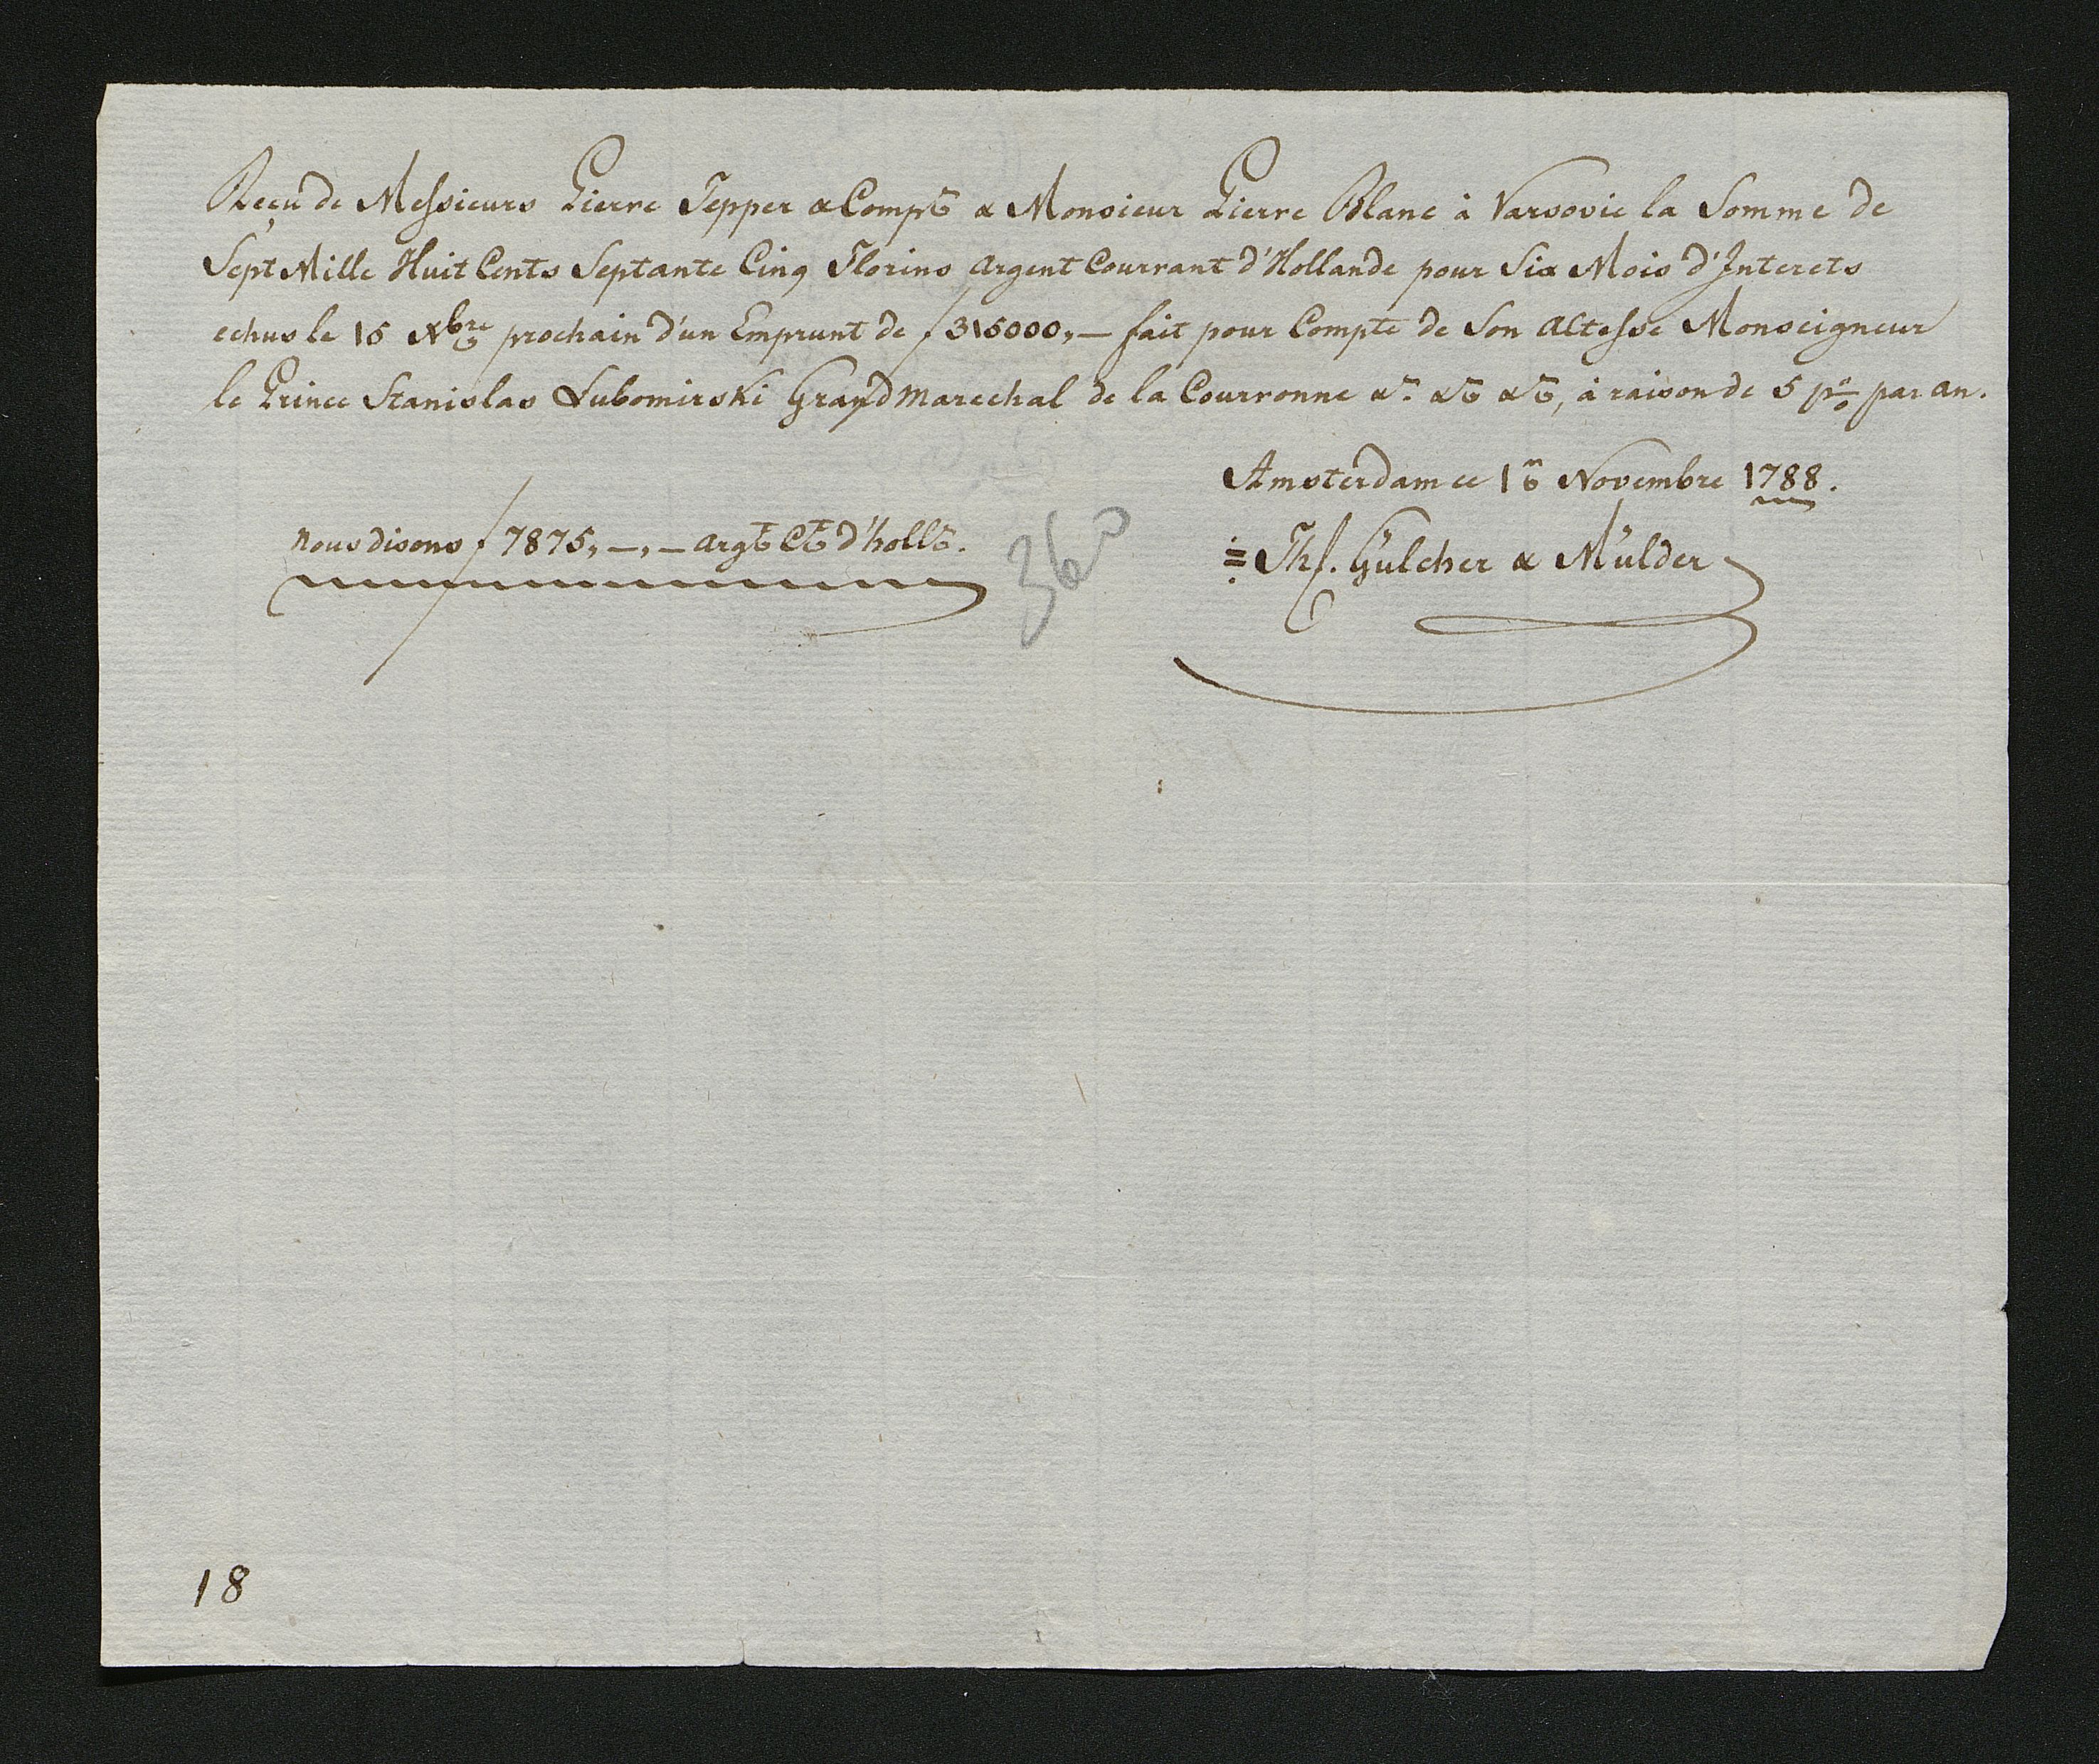 Reçu de Messieurs Pierre Tepper & Compe & Monsieur Pierre Blanc à Varsovie la Somme de
Sept Mille Huit Cents Septante Cinq Florins Argent Courrant d'Hollande pour Six Mois d'Interets
echus le 15 Xbre prochain d'un Emprunt de f 315000,— fait pour Compte de Son Altesse Monseigneur
le Prince Stanislas Lubomirski Grand Marechal de la Courronne &c &c &c, à raison de 5 pr% par an.
Amsterdam ce Novembre 1788.
Nous disons f 7875,—,— Argt Ct d'hollde.
360
Ths. Gülcher & Mülder
18